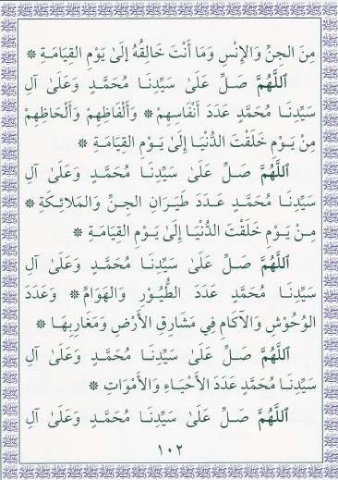 مِنَ الجِنِّ وَالإِنْسِ وَمَا أَنْتَ خَالِقُهُ إِلَىٰ يَوْمِ القِيَامَةِ ۞
اَللَّهُمَّ صَلِّ عَلَىٰ سَيِّدِنَا مُحَمَّدٍ وَعَلَىٰ آلِ
سَيِّدِنَا مُحَمَّدٍ عَدَدَ أَنْفَاسِهِمْ ۞ وَأَلْفَاظِهِمْ وَأَلْحَاظِهِمْ
مِنْ يَوْمِ خَلَقْتَ الدُّنْيَا إِلَىٰ يَوْمِ القِيَامَةِ ۞
اَللَّهُمَّ صَلِّ عَلَىٰ سَيِّدِنَا مُحَمَّدٍ وَعَلَىٰ آلِ
سَيِّدِنَا مُحَمَّدٍ عَدَدَ طَيَرَانِ الجِنِّ وَالمَلَائِكَةِ ۞
مِنْ يَوْمِ خَلَقْتَ الدُّنْيَا إِلَىٰ يَوْمِ القِيَامَةِ ۞
اَللَّهُمَّ صَلِّ عَلَىٰ سَيِّدِنَا مُحَمَّدٍ وَعَلَىٰ آلِ
سَيِّدِنَا مُحَمَّدٍ عَدَدَ الطُّيُورِ وَالهَوَامِّ ۞ وَعَدَدَ
الوُحُوشِ وَالآكَامِ فِي مَشَارِقِ الأَرْضِ وَمَغَارِبِهَا ۞
اَللَّهُمَّ صَلِّ عَلَىٰ سَيِّدِنَا مُحَمَّدٍ وَعَلَىٰ آلِ
سَيِّدِنَا مُحَمَّدٍ عَدَدَ الأَحْيَاءِ وَالأَمْوَاتِ ۞
اَللَّهُمَّ صَلِّ عَلَىٰ سَيِّدِنَا مُحَمَّدٍ وَعَلَىٰ آلِ
١٠٢